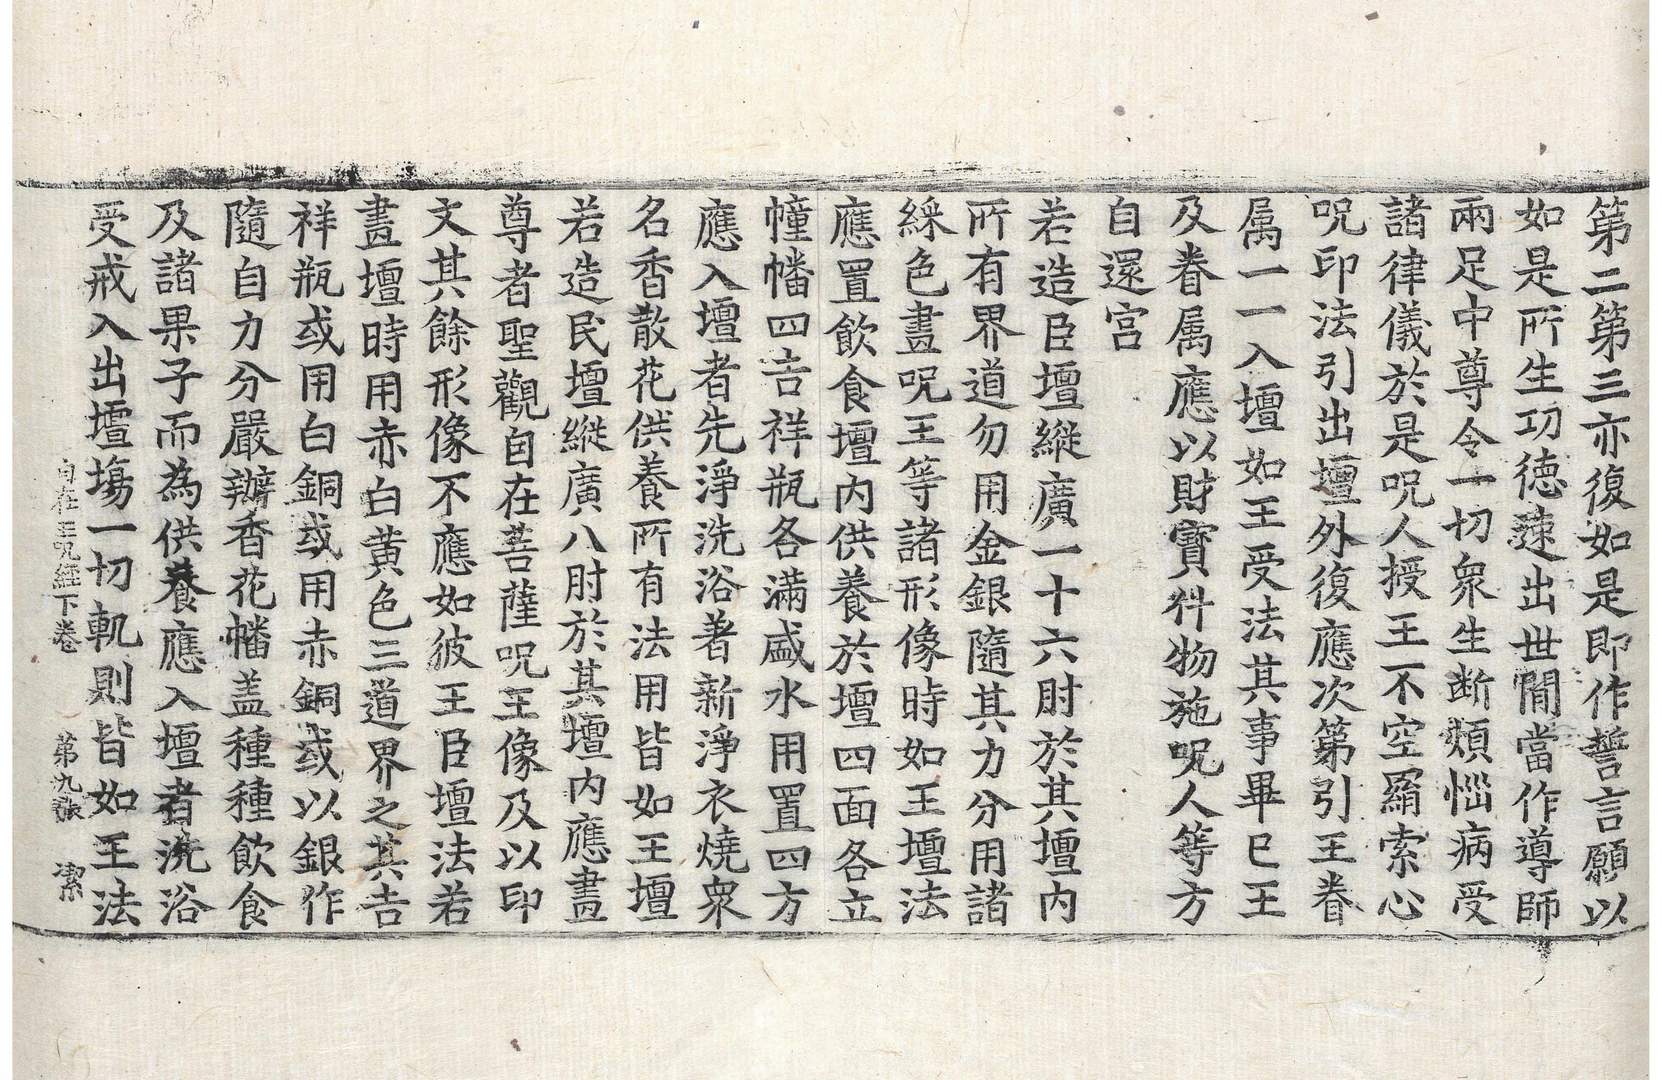 第二第三亦復如是即作誓言願以
如是所生功徳速出世閒當作導師
兩足中尊令一切衆生断煩惱病受
諸律儀於是呪人授王不空羂索心
呪印法引出壇外復應次第引王眷
属一一入壇如王受法其事畢已王
及眷属應以財寶件物施呪人等方
自還宫
若造臣壇縱廣一十六肘於其壇内
所有界道勿用金銀隨其力分用諸
綵色畫呪王等諸形像時如王壇法
應置飲食壇内供養於壇四面各立
幢幡四吉祥瓶各滿盛水用置四方
應入壇者先淨洗浴著新淨衣燒衆
名香散花供養所有法用皆如王壇
若造民壇縱廣八肘於其壇内應畫
尊者聖觀自在菩薩呪王像及以印
文其餘形像不應如彼王臣壇法若
畫壇時用赤白黄色三道界之其吉
祥瓶或用白銅或用赤銅或以銀作
隨自力分嚴辦香花幡盖種種飲食
及諸果子而為供養應入壇者洗浴
受戒入出壇場一切軌則皆如王法
自在王呪經下卷 第九張 潔